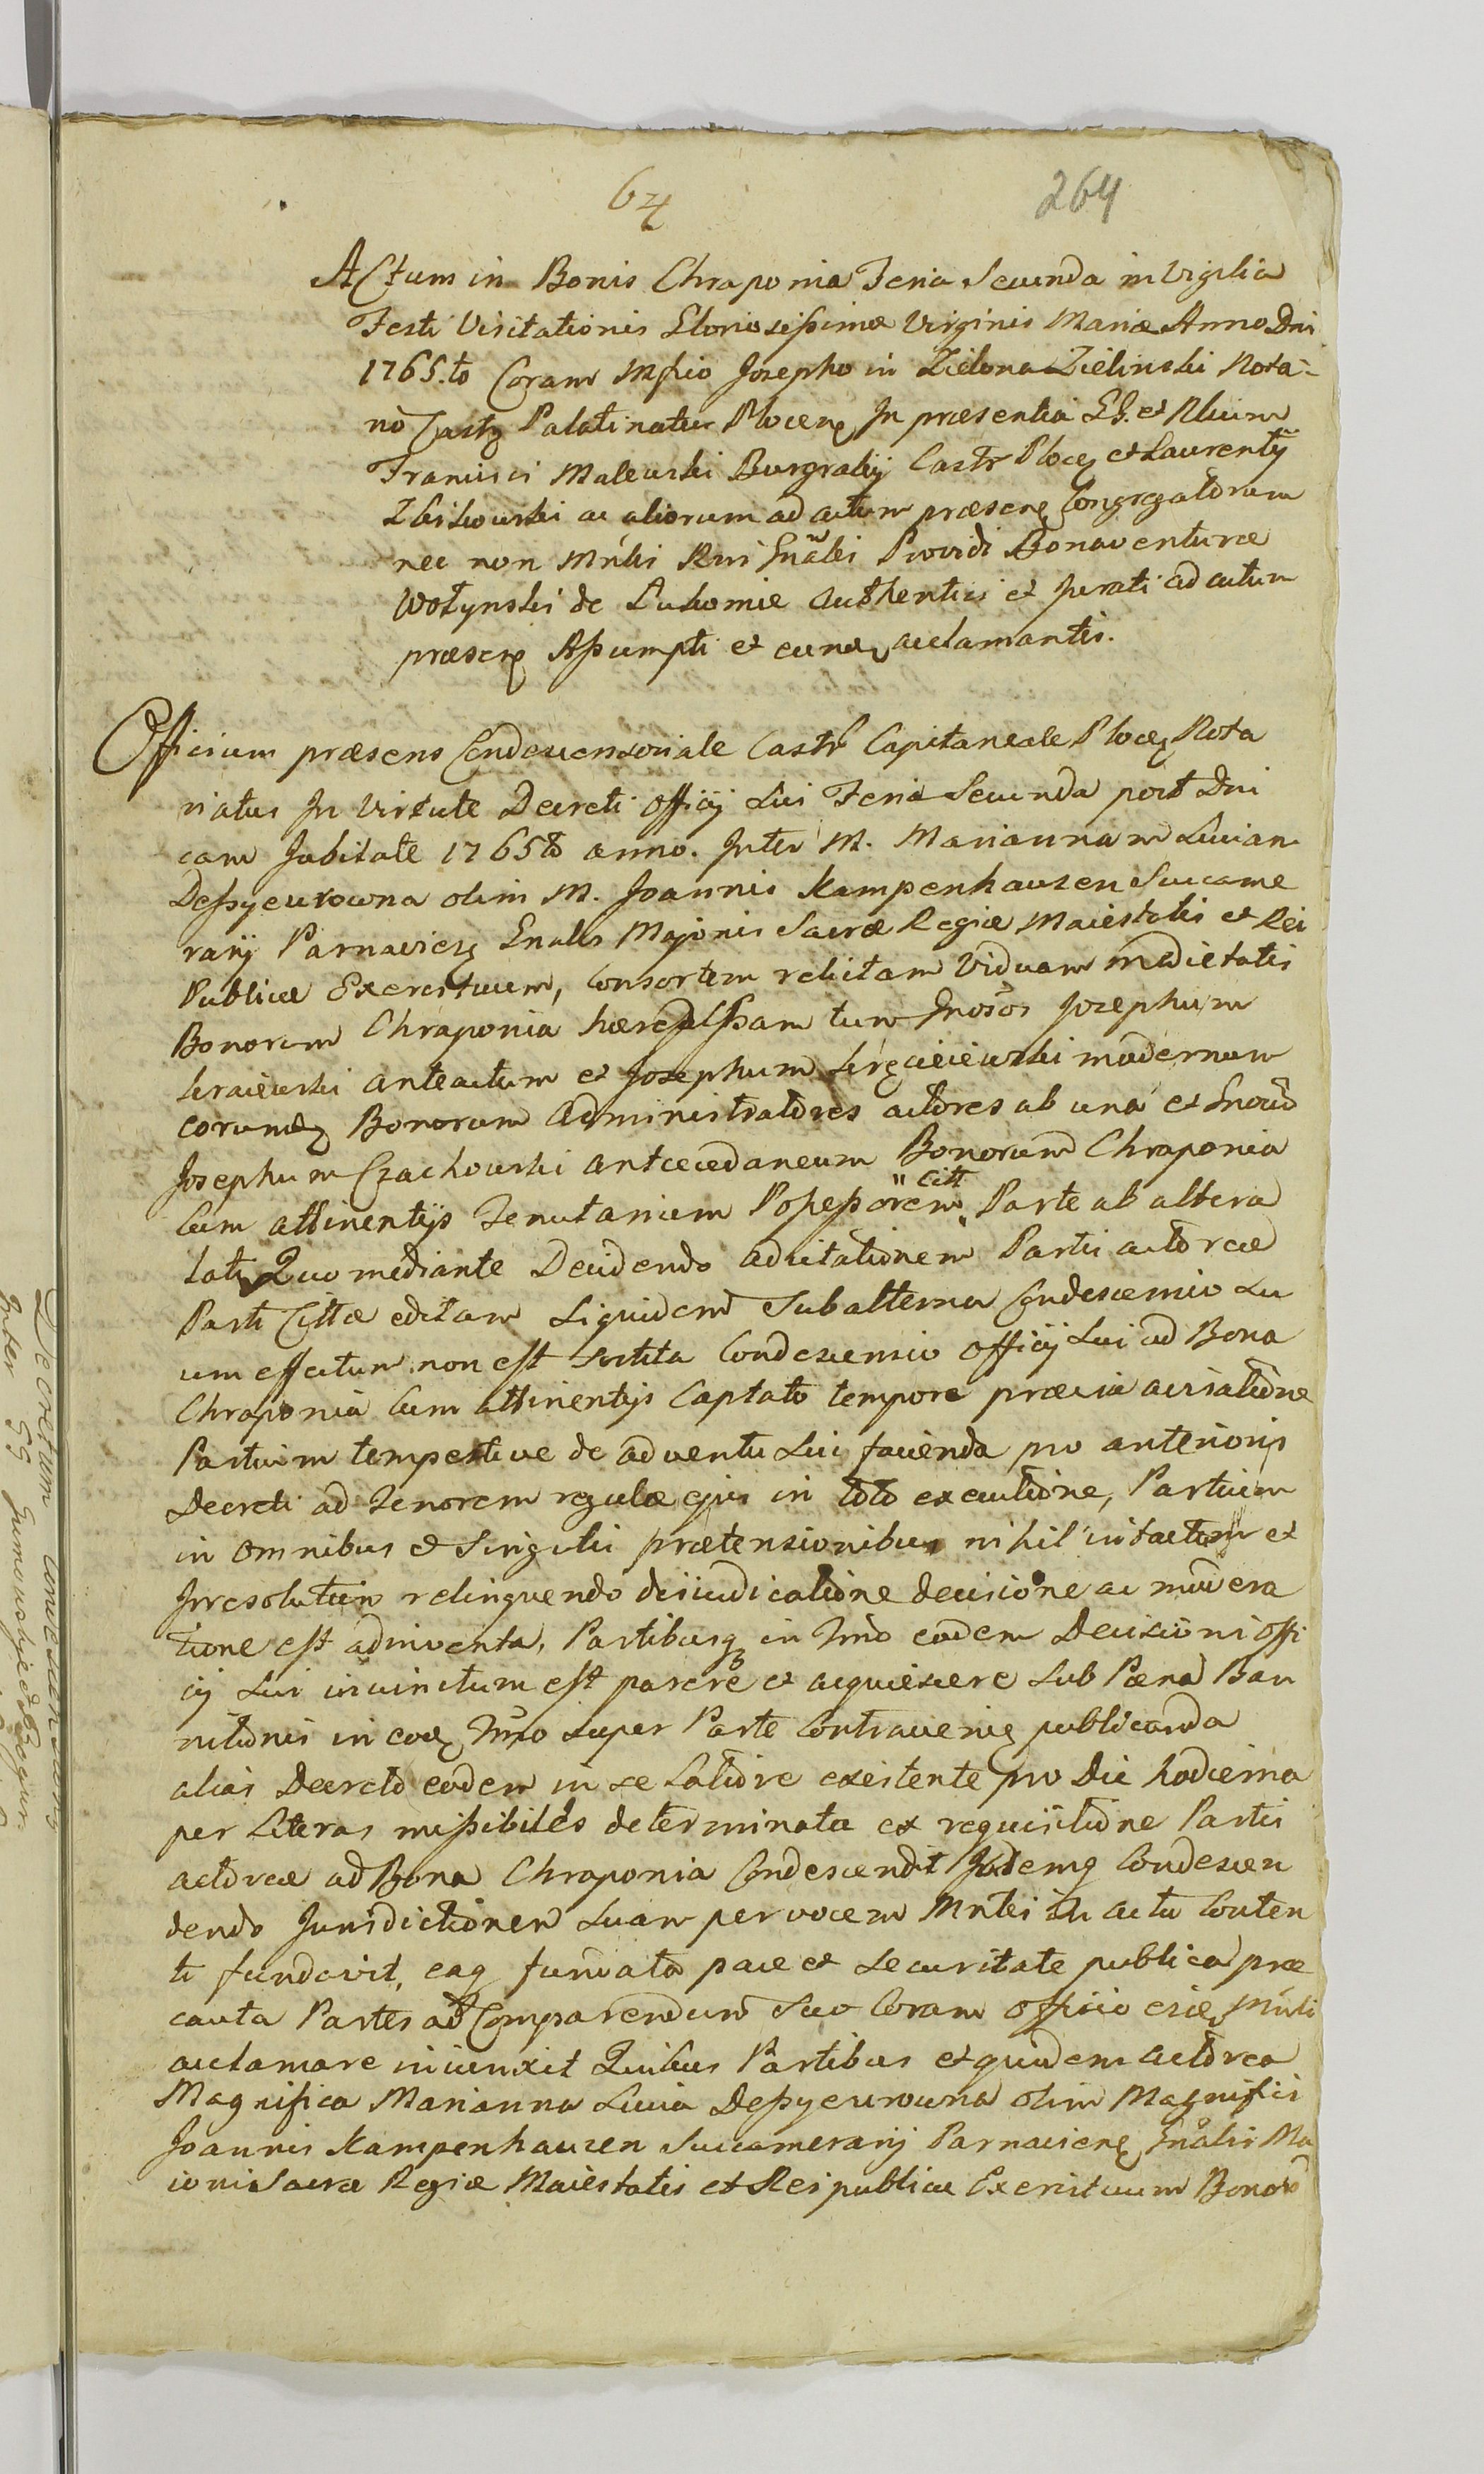 64 264
Actum in Bonis Chraponia Feria Secunda in Vigilia
Festi Visitationis Gloriosissimæ Virginis Mariæ Anno Dni
1765.to Coram Mfico Josepho in Zielona Zielinski Nota-
rio Castr Palatinatus Plocen In præsentia GG. et Nlium
Francisci Malewski Burgrabij Castr Plocen et Laurentij
Zbikowski ac aliorum ad actum præsen Congregatorum
nec non Mnlis Rni Gnalis Providi Bonaventuræ
Wołynski de Lukomie Authentici et Jurati ad actum
præsen Assumpti et eund acclamantis.
Officium præsens Condescensoriale Castr Capitaneale Plocen Nota
riatus In Virtute Decreti Officij Sui Feria Secunda post Dni
cam Jubilate 1765to anno. Inter M. Mariannam Luciam
Deszyeurowna olim M. Joannis Kampenhauzen Succame
rarij Parnavien Gnalis Majoris Sacræ Regiæ Maiestatis et Rei
Publicæ Exercituum, Consortem relictam Viduam medietatis
Bonorum Chraponia hæredissam tum Gnosos Josephum
Kraiewski anteactum et Josephum modernum
eorund Bonorum Administratores actores ab una et Gnosum
Josephum Czachowski antecedaneum Bonorum Chraponia
Cum attinentijs Tenutarium Possessorem "Citt" Parte ab altera
lati Quo mediante Decidendo adcitationem Parti actoreæ
Parti Cittæ editam Siquidem Subalterna Condescensio Su
um effectum non est sortita Condescensio Officij Sui ad Bona
Chraponia Cum attinentijs Captato tempore prævia avisatione
Partium tempestive de adventu Sui facienda pro anterioris
Decreti ad tenorem regulæ ejus in toto executione, Partium
in omnibus et Singulis prætensionibus nihil intactum et
Irresolutum relinquendo dijudicatione decisione ac
tione est adinventa, Partibusq in Tmno eodem Decisioni Offi
cij Sui iniunctum est parere et acquiescere Sub Pæna Ban
nitionis in eod Tmno super Parte Contravenien publicanda
alias Decreto eodem in se Latiore existente pro Die hodierna
per Literas missibiles determinata ex requisitione Partis
actoreæ ad Bona Chraponia Condescendit Ibidemq Condescen
dendo Jurisdictionem Suam per vocem Mnlis in actu Conten
ti fundavit, eaq fundata pace et securitate publica præ
cauta Partes ad Comparendum Suo Coram Officio eid Mnli
acclamare iniunxit Quibus Partibus et quidem actorea
Magnifica Marianna Lucia Deszyeurowna olim Magnifici
Joannis Kampenhauzen Succamerarij Parnavien Gnalis Ma
ioris Sacræ Regiæ Maiestatis et Reipublicæ Exercituum Bonor
Decretum Condescensionis
Inter GG